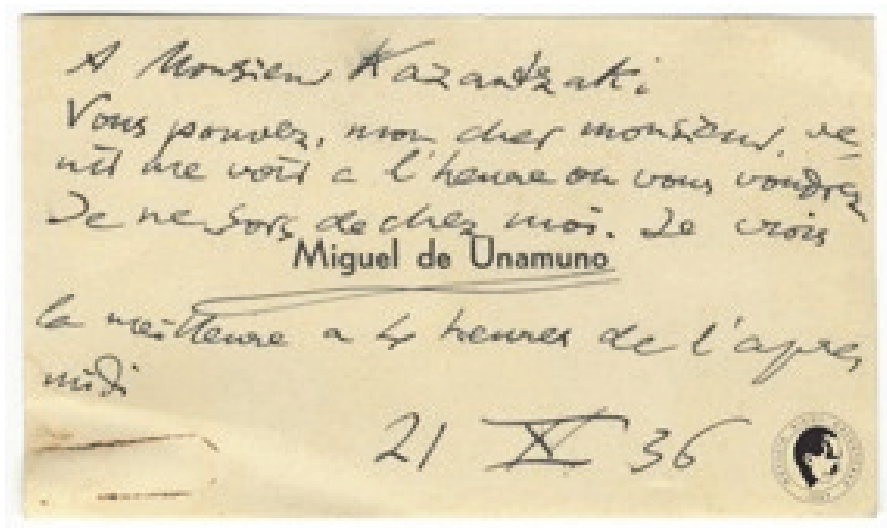 A Monsieur Kazantzaki
Vous pouvez, mon cher monsieur, ve-
nir me voir a l'heure ou vous voudrez
Je ne sors de chez moi. Je crois
Miguel de Unamuno
la meilleure a 4 heures de l'apres
midi
21 X 36